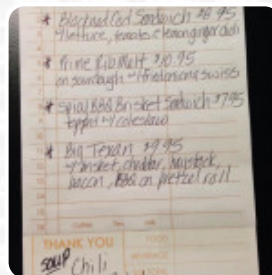 * Blackened Cod Sandwich $8.95
w/lettuce, tomato, & lemon ginger aioli
* Prime Rib Melt $10.95
on sourdough w/ onions swiss
* Spicy BBQ Brisket Sandwich $7.95
w/ coleslaw
* Big Texan $9.95
w/ brisket, cheddar, haystack,
bacon, BBQ on pretzel roll
THANK YOU
FOOD
SOUP Chili